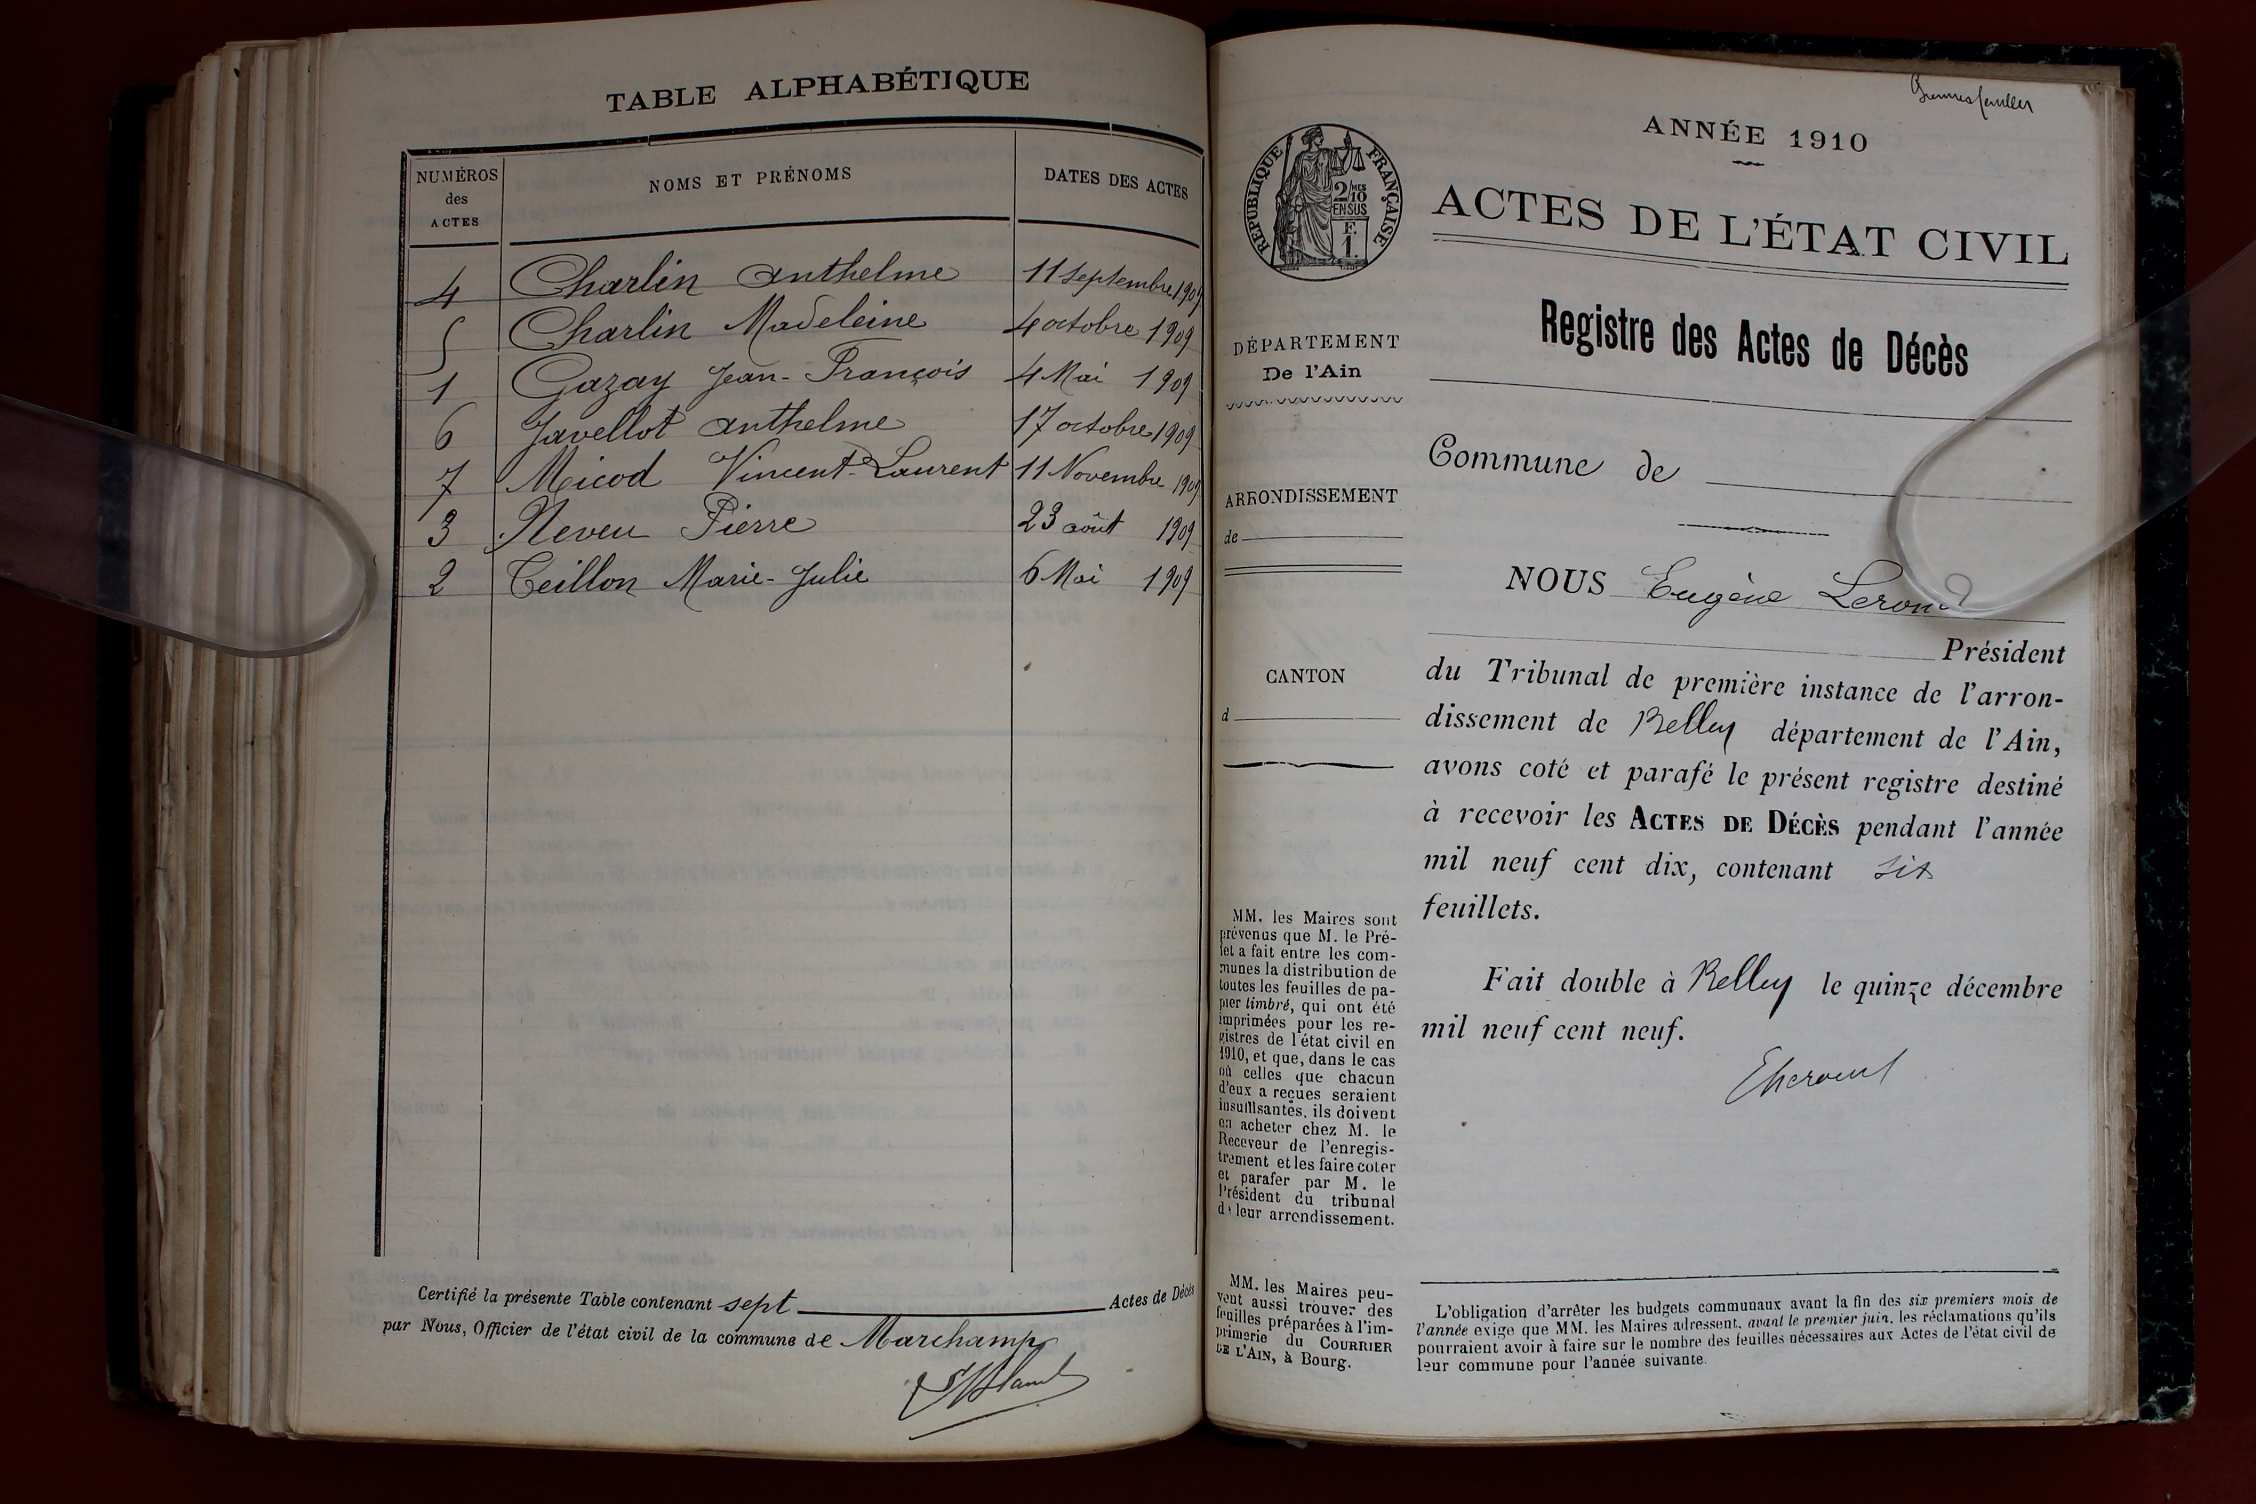 TABLE ALPHABÉTIQUE
NUMÉROS des ACTES NOMS ET PRÉNOMS DATES DES ACTES
4 Charlin Anthelme 11 septembre 1909
5 Charlin Madeleine 4 octobre 1909
1 Gazay Jean-François 4 Mai 1909
6 Javellot Anthelme 17 octobre 1909
7 Micod Vincent-Laurent 11 Novembre 1909
3 Neveu Pierre 23 août 1909
2 Teillon Marie-Julie 6 Mai 1909
Certifié la présente Table contenant sept Actes de Décès
par Nous, Officier de l'état civil de la commune de Marchamp
Premier feuillet
ANNÉE 1910
RÉPUBLIQUE FRANÇAISE
2/10 MES
EN SUS
F.
1.
ACTES DE L'ÉTAT CIVIL
DÉPARTEMENT
De l'Ain
ARRONDISSEMENT
de
CANTON
d
MM. les Maires sont
prévenus que M. le Pré-
fet a fait entre les com-
munes la distribution de
toutes les feuilles de pa-
pier timbré, qui ont été
imprimées pour les re-
gistres de l'état civil en
1910, et que, dans le cas
où celles que chacun
d'eux a reçues seraient
insuffisantes, ils doivent
en acheter chez M. le
Receveur de l'enregis-
trement et les faire coter
et parafer par M. le
Président du tribunal
de leur arrondissement.
MM. les Maires peu-
vent aussi trouver des
feuilles préparées à l'im-
primerie du COURRIER
DE L'AIN, à Bourg.
Registre des Actes de Décès
Commune de
NOUS Eugène
Président
du Tribunal de première instance de l'arron-
dissement de Belley département de l'Ain,
avons coté et parafé le présent registre destiné
à recevoir les ACTES DE DÉCÈS pendant l'année
mil neuf cent dix, contenant six
feuillets.
Fait double à Belley le quinze décembre
mil neuf cent neuf.
L'obligation d'arrêter les budgets communaux avant la fin des six premiers mois de
l'année exige que MM. les Maires adressent, avant le premier juin, les réclamations qu'ils
pourraient avoir à faire sur le nombre des feuilles nécessaires aux Actes de l'état civil de
leur commune pour l'année suivante.